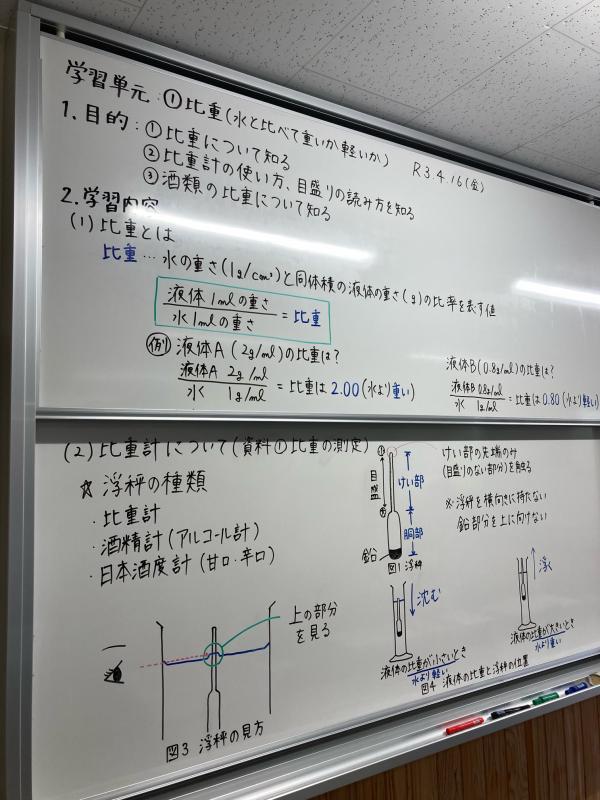 学習単元:①比重(水と比べて重いか軽いか)
R3.4.16(金)
1.目的:①比重について知る
②比重計の使い方、目盛りの読み方を知る
③酒類の比重について知る
2.学習内容
(1)比重とは
比重…水の重さ(1g/cm³)と同体積の液体の重さ(g)の比率を表す値
液体1mlの重さ
水1mlの重さ
=比重
(例)液体A(2g/ml)の比重は?
液体A 2g/ml
水 1g/ml
=比重は2.00(水より重い)
液体B(0.8g/ml)の比重は?
液体B 0.8g/ml
水 1g/ml
=比重は0.80(水より軽い)
(2)比重計について(資料①比重の測定)
☆浮秤の種類
・比重計
・酒精計(アルコール計)
・日本酒度計(甘口・辛口)
小
目盛
大
けい部
胴部
鉛
図1 浮秤
けい部の先端のみ
(目盛りのない部分)を触る
※浮秤を横向きに持たない
鉛部分を上に向けない
上の部分
を見る
図3 浮秤の見方
沈む
液体の比重が小さいとき
水より軽い
浮く
液体の比重が大きいとき
水より重い
図4 液体の比重と浮秤の位置